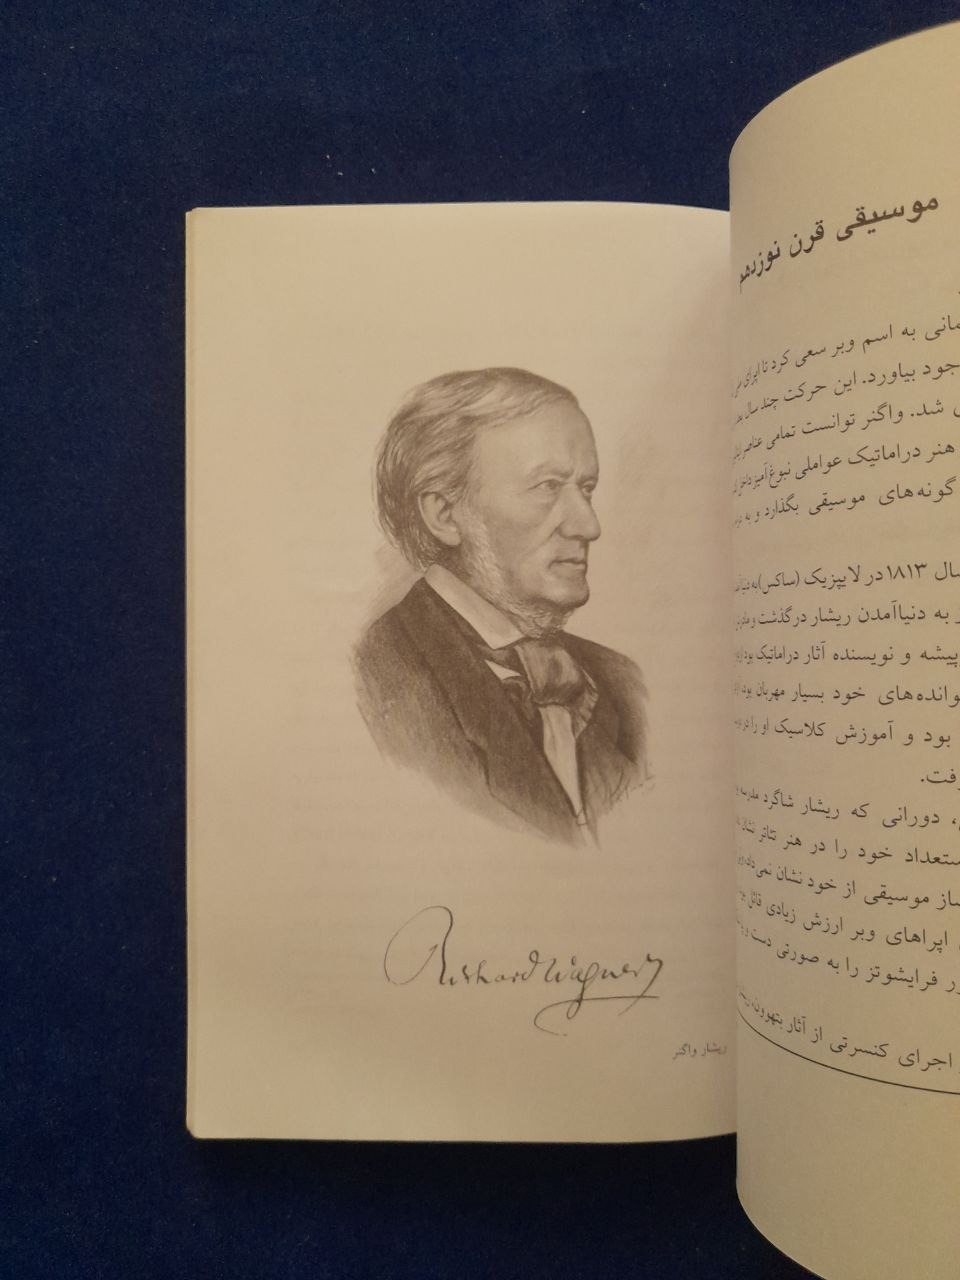 موسیقی قرن نوزدهم
مانی به اسم وبر سعی کرد تا اپرای
جود بیاورد. این حرکت چند سال
ی شد. واگنر توانست تمامی عناصر
هنر دراماتیک عواملی نبوغ آمیز داخل
گونه‌های موسیقی بگذارد و به
سال ۱۸۱۳ در لایپزیک (ساکس) به دنیا
ز به دنیاآمدن ریشار درگذشت و
پیشه و نویسنده آثار دراماتیک بود
وانده‌های خود بسیار مهربان بود.
بود و آموزش کلاسیک او را در
رفت.
، دورانی که ریشار شاگرد مدرسه
ستعداد خود را در هنر تئاتر نشان
ساز موسیقی از خود نشان نمی‌داد،
اپراهای وبر ارزش زیادی قائل
ور فرایشوتز را به صورتی دست و
اجرای کنسرتی از آثار بتهوون،
Richard Wagner
ریشار واگنر